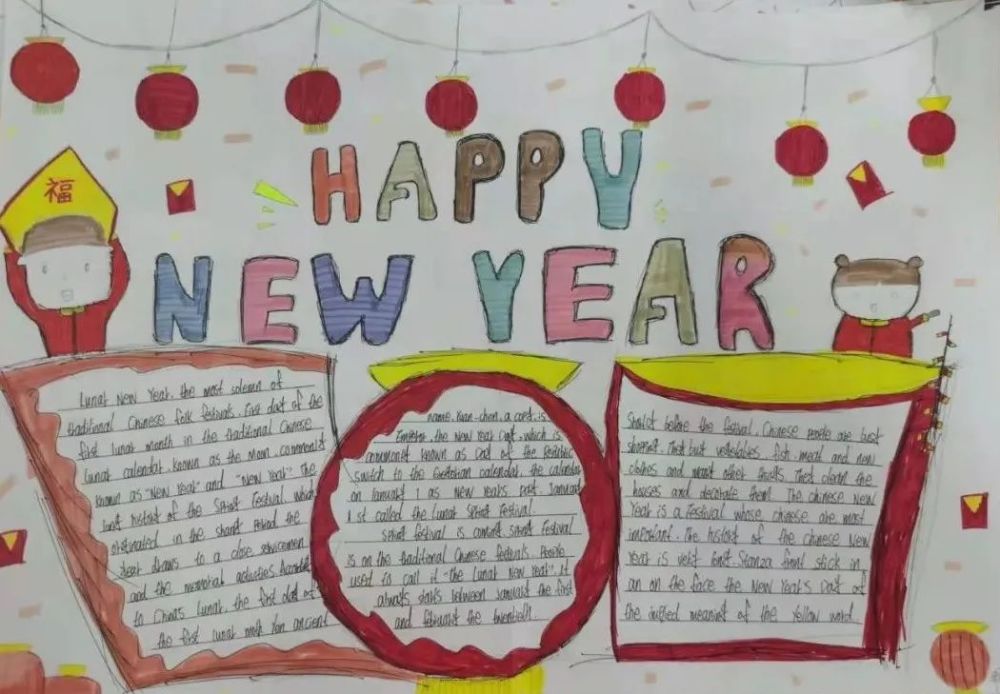 福
HAPPY
NEW YEAR
Lunar New Year, the most solemn of
traditional Chinese folk festivals. First day of the
first lunar month in the traditional Chinese
lunar calendar, known as the moon, commonly
known as "New Year" and "New Year" The
long history of the Spring Festival, which
originated in the shang period the
year draws to a close
and the memorial activities. According
to China's lunar, the first day of
the first lunar month Yan ancient
name, Yuan-chen, a card, is
the New Year Day, which is
known as Day of the Republic
switch to the Gregorian calendar, the calendar
on January 1 as New Year's Day. January
1 st called the lunar Spring Festival.
Spring festival is coming Spring festival
is on the traditional Chinese festivals. People
used to call it "the Lunar New Year". It
always starts between January the first
and February the twentieth.
Shortly before the festival, Chinese people are busy
They buy vegetables, fish, meat and new
clothes and many other things. They clean the
houses and decorate them. The Chinese New
Year is a festival whose chinese are most
important. The history of the chinese New
Year is very long. Stanza stick in
an on the face the New Year's Day of
the meaning of the yellow word.